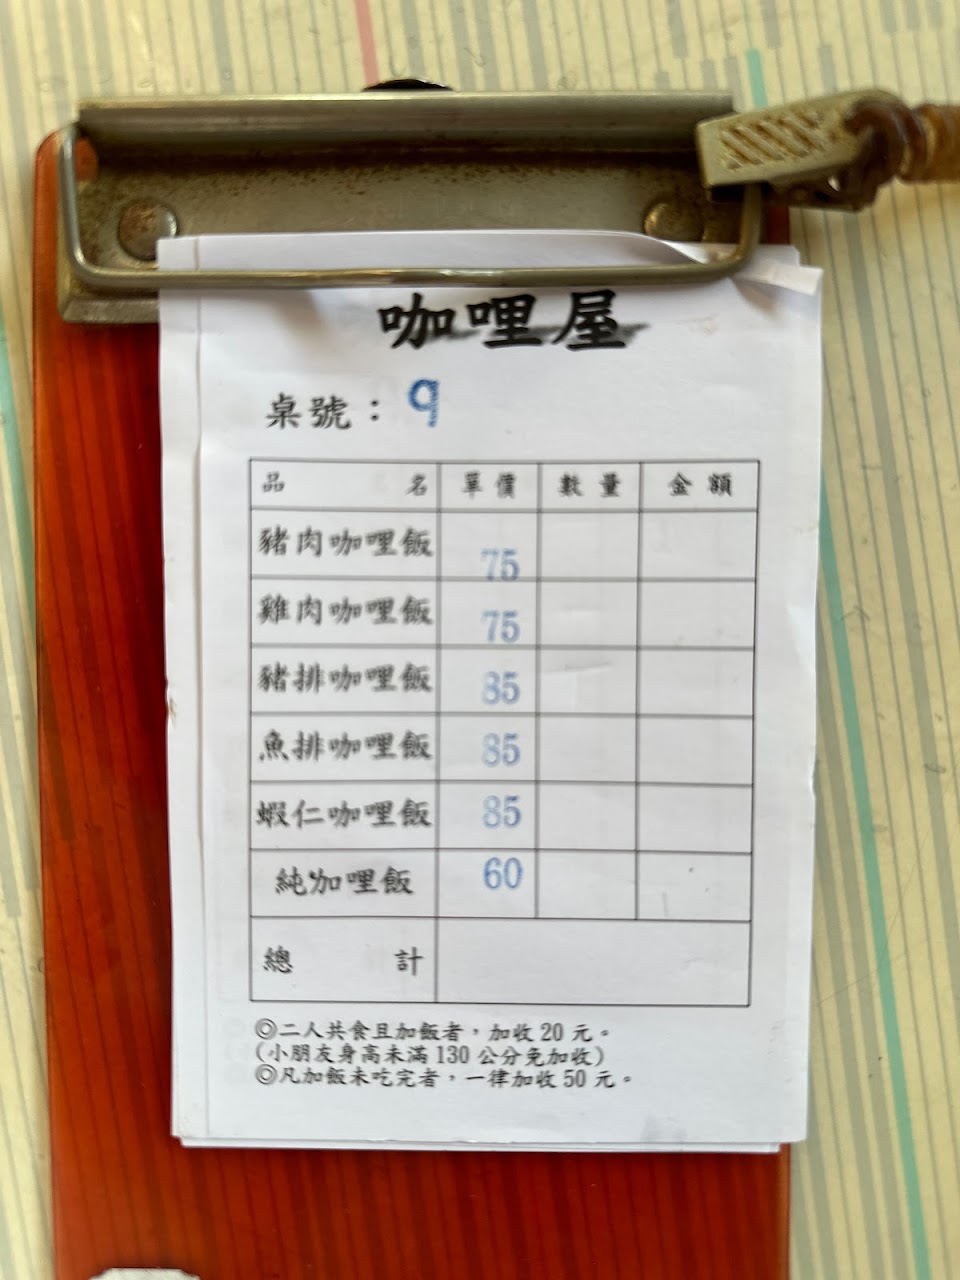 咖哩屋
桌號：9
品名 單價 數量 金額
豬肉咖哩飯 75
雞肉咖哩飯 75
豬排咖哩飯 85
魚排咖哩飯 85
蝦仁咖哩飯 85
純咖哩飯 60
總計
◎二人共食且加飯者，加收20元。
(小朋友身高未滿130公分免加收)
◎凡加飯未吃完者，一律加收50元。